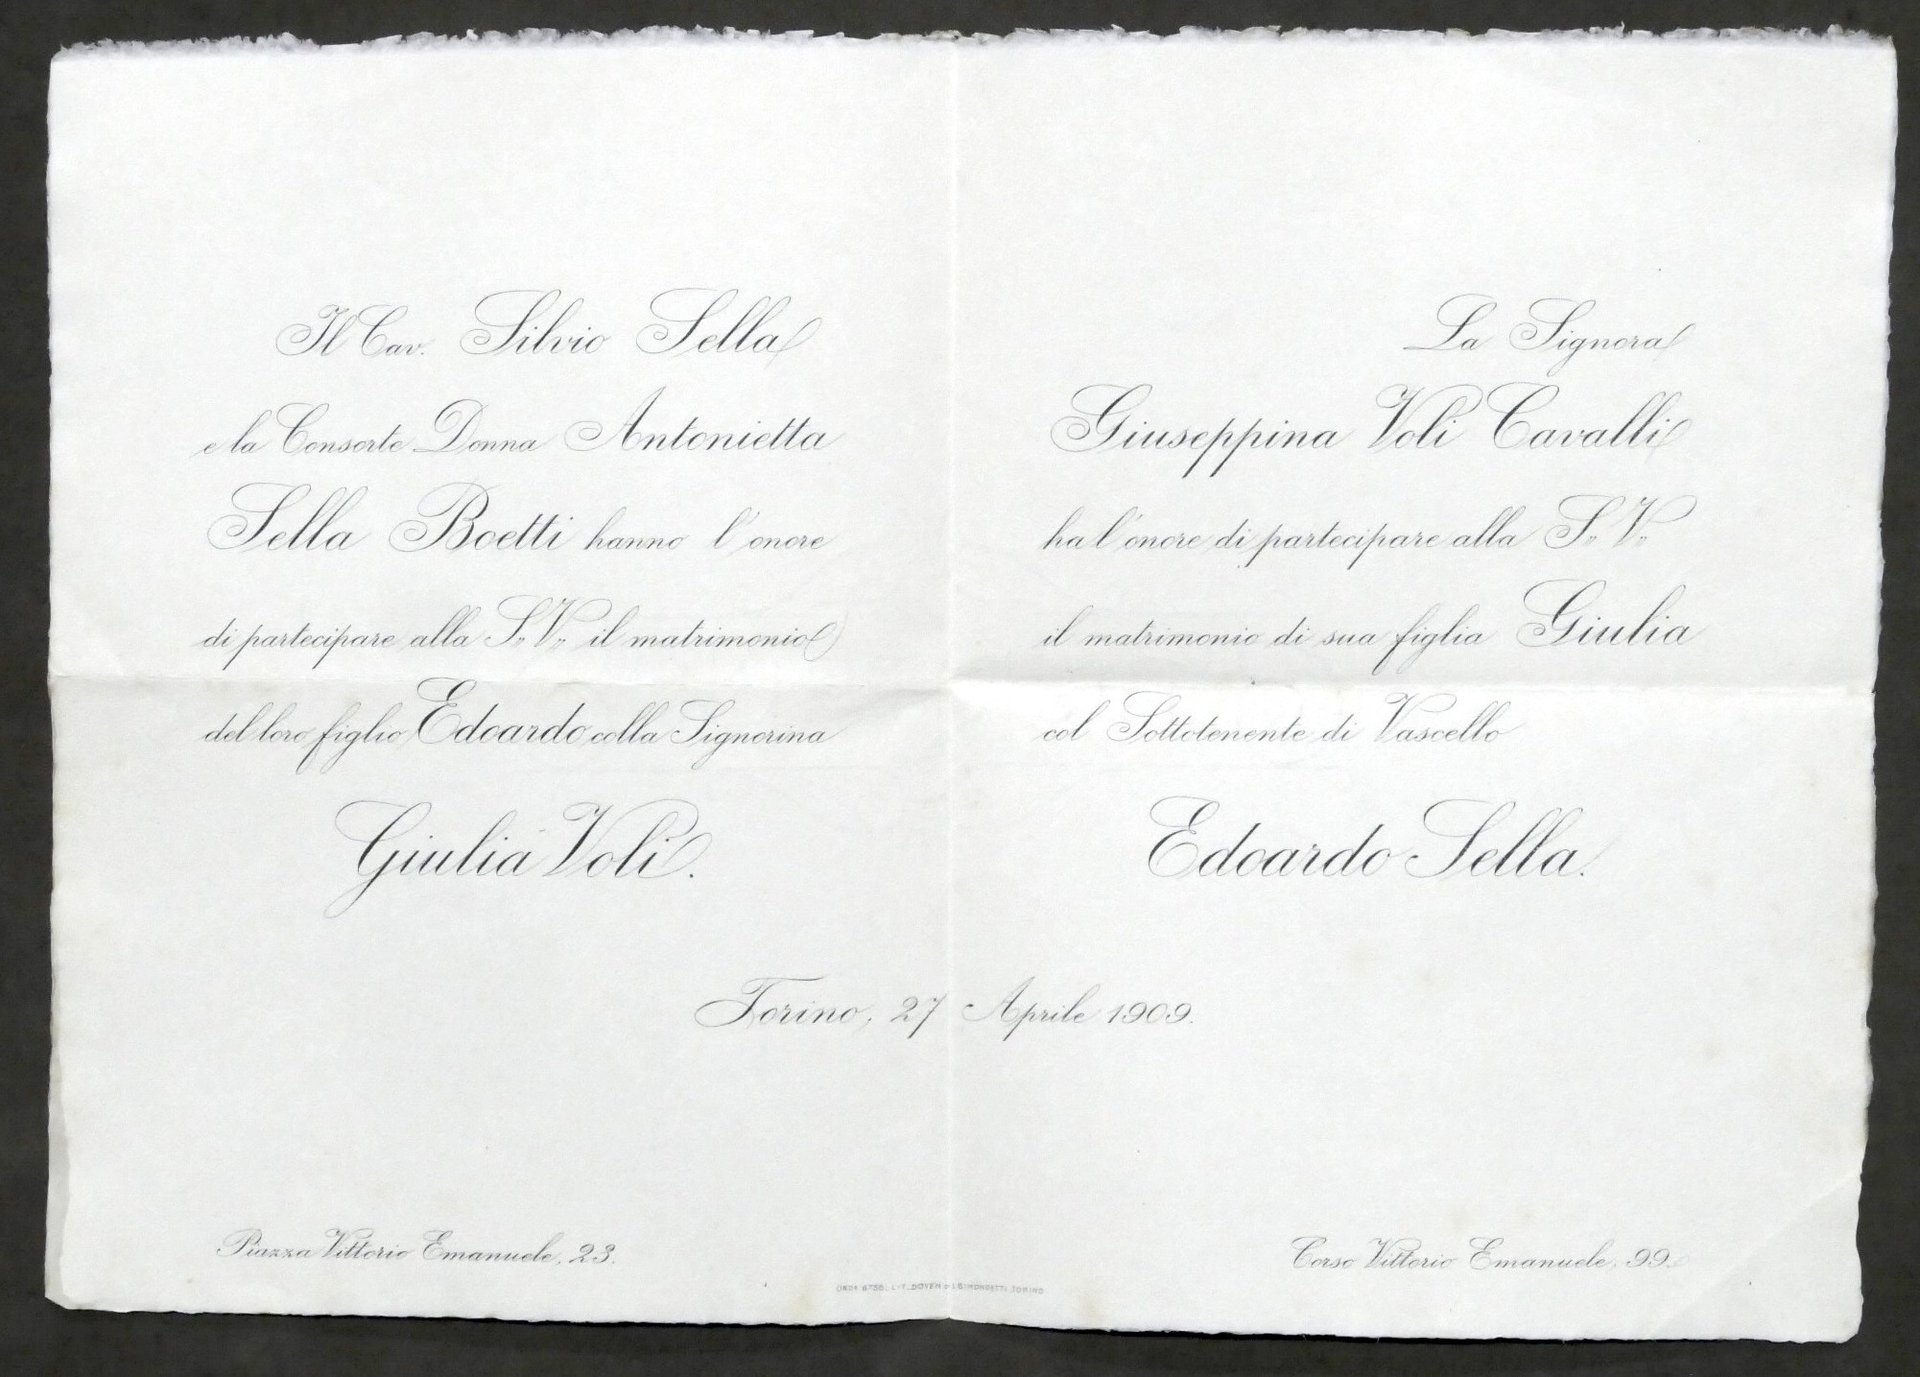 Il Cav. Silvio Sella
e la Consorte Donna Antonietta
Sella Boetti hanno l'onore
di partecipare alla S.. V.. il matrimonio
del loro figlio Edoardo colla Signorina
Giulia Voli.
La Signora
Giuseppina Voli Cavalli
ha l'onore di partecipare alla S.. V..
il matrimonio di sua figlia Giulia
col Sottotenente di Vascello
Edoardo Sella.
Torino, 27 Aprile 1909.
Piazza Vittorio Emanuele, 23.
Corso Vittorio Emanuele, 99.
TORINO